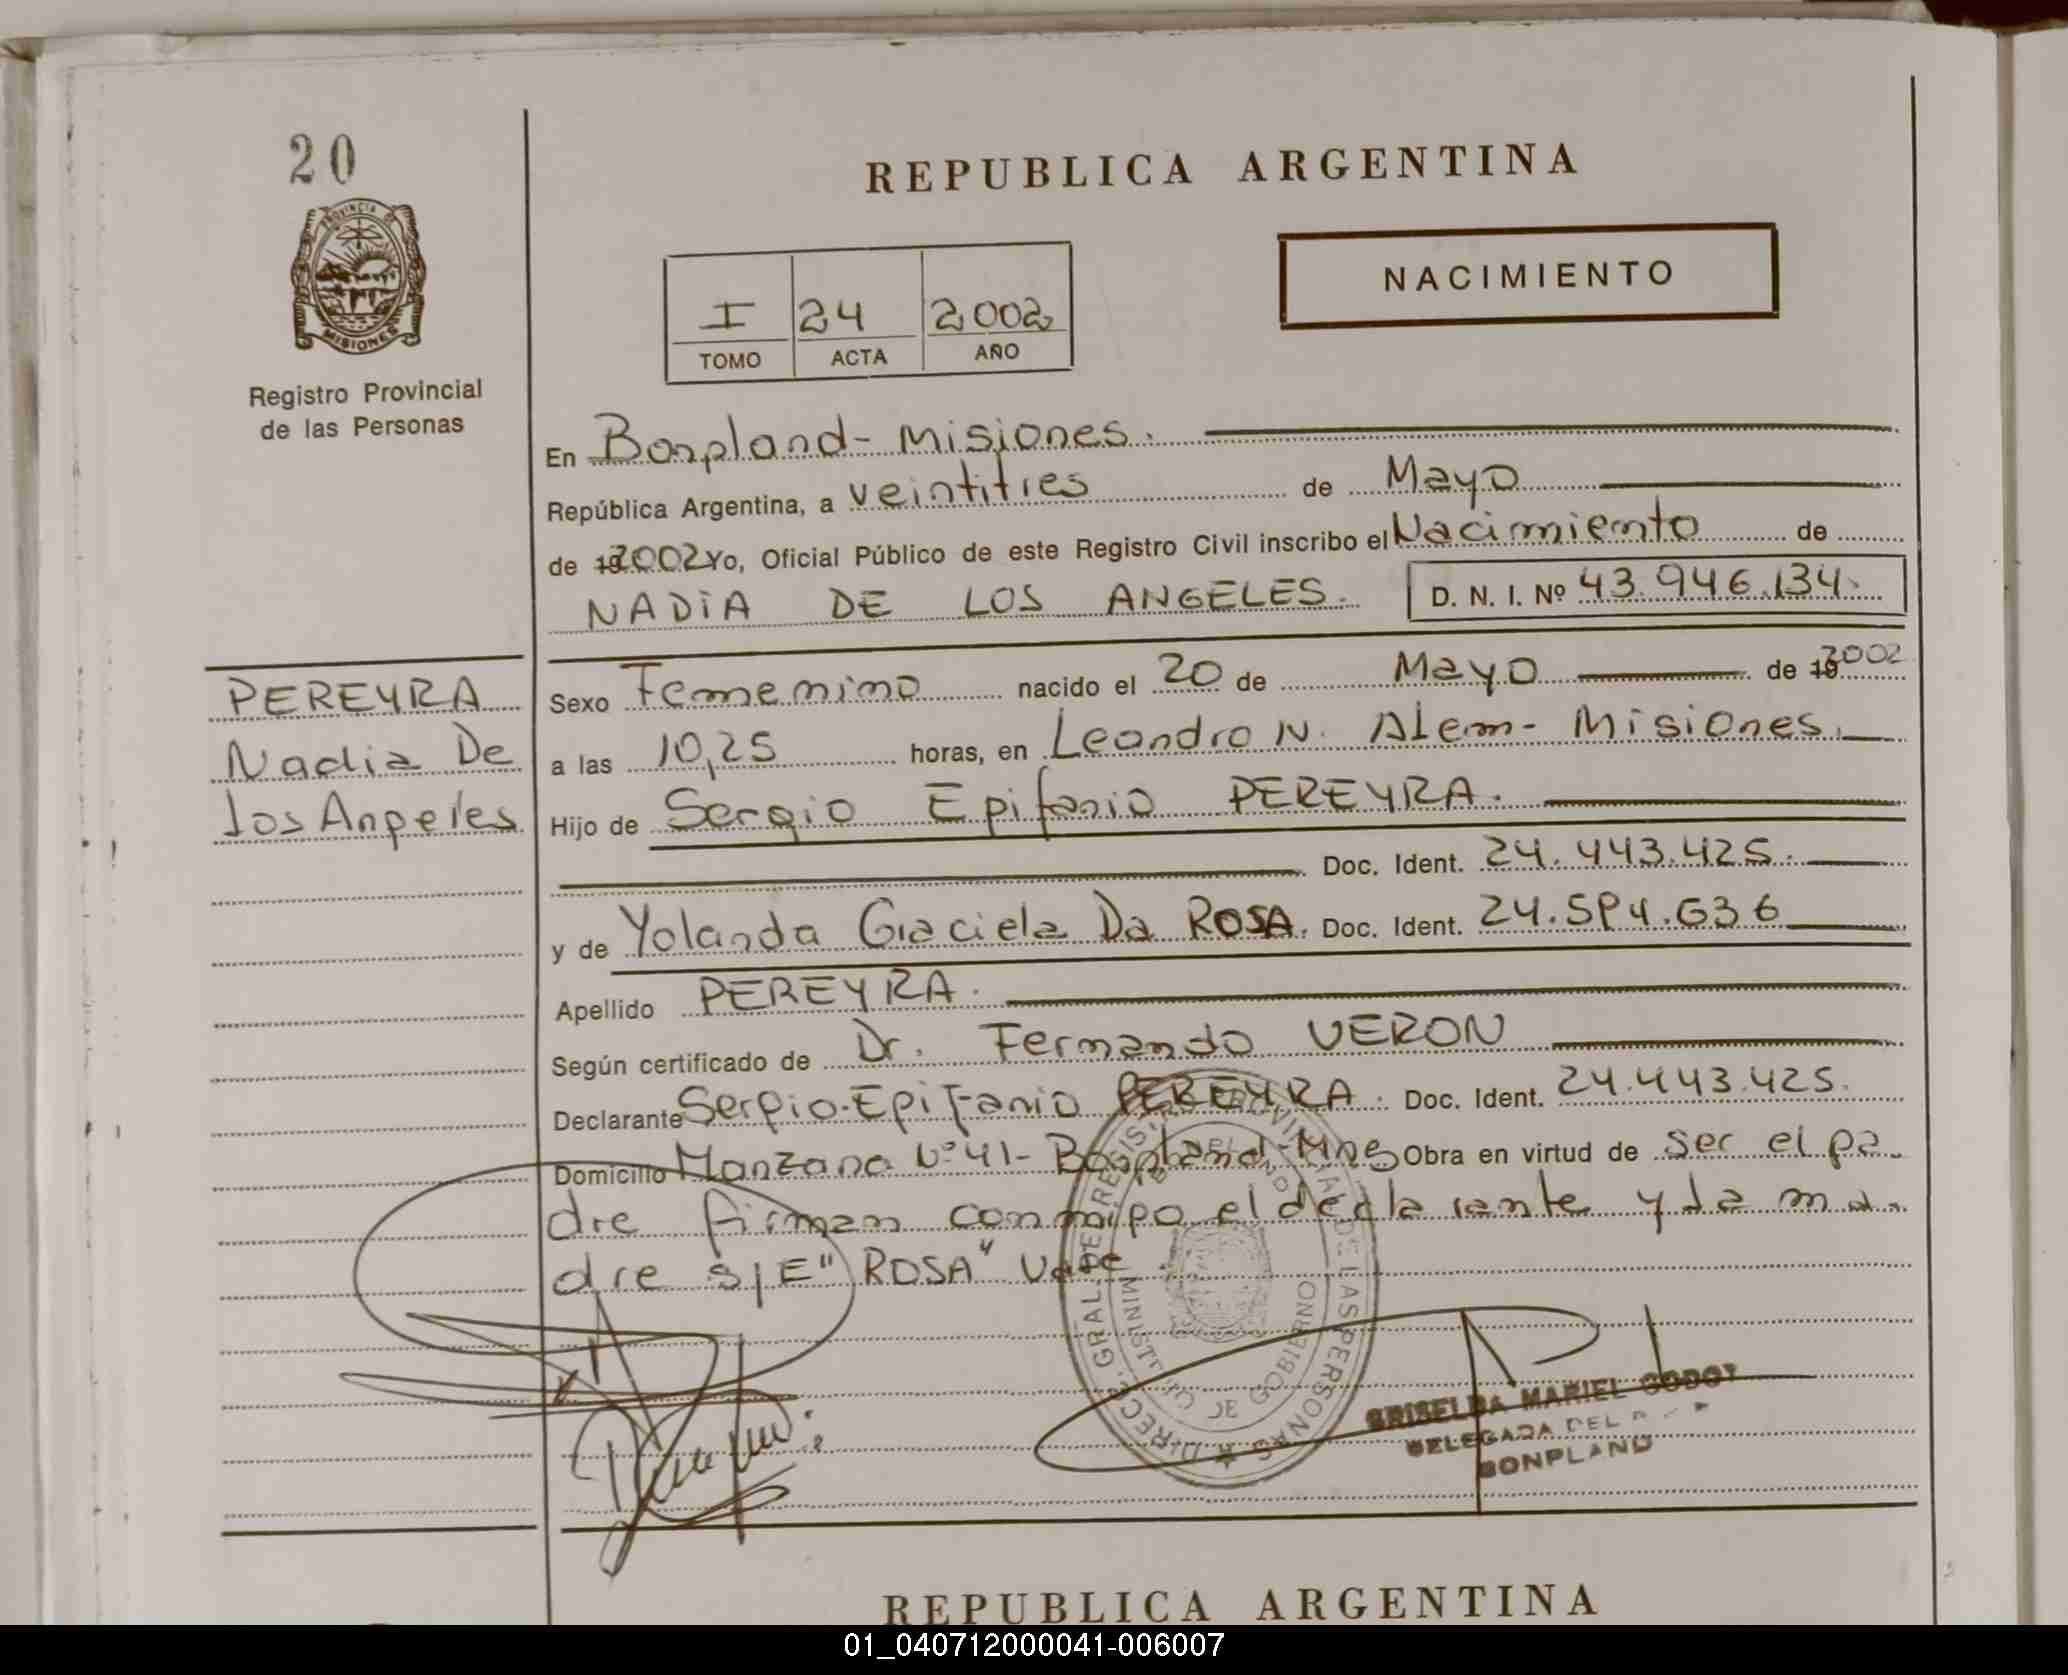 20
REPUBLICA ARGENTINA
PROVINCIA DE
MISIONES
NACIMIENTO
I 24 2002
TOMO ACTA AÑO
Registro Provincial
de las Personas
En Bonpland - Misiones.
República Argentina, a veintitres de Mayo
de 19 2002 Yo, Oficial Público de este Registro Civil inscribo el Nacimiento de
NADIA DE LOS ANGELES. D. N. I. Nº 43.946.134.
PEREYRA
Nadia De
los Angeles
Sexo Femenino nacido el 20 de Mayo de 19 2002
a las 10,25 horas, en Leandro N. Alem - Misiones.
Hijo de Sergio Epifanio PEREYRA.
Doc. Ident. 24.443.425.
y de Yolanda Graciela Da ROSA. Doc. Ident.
Apellido PEREYRA.
Según certificado de Dr. Fernando VERON
Declarante Sergio Epifanio PEREYRA. Doc. Ident. 24.443.425.
Domicilio Manzana Nº 41 - Bonpland - Mnes Obra en virtud de ser el pa-
dre firman conmigo el declarante y la ma-
dre s/E "ROSA" Vale
DIREC. GRAL. DE REGIST. PROVINCIAL DE LAS PERSONAS
MINISTERIO DE GOBIERNO
GRISELDA MARIEL GODOY
DELEGADA DEL
BONPLAND
REPUBLICA ARGENTINA
01_040712000041-006007